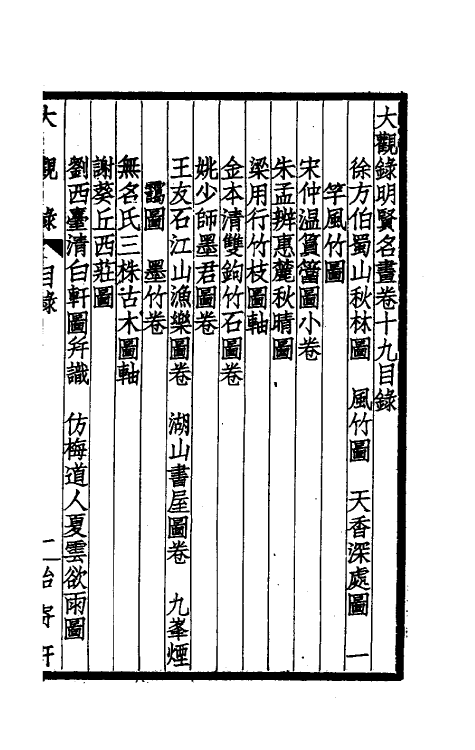 大觀錄明賢名畫卷十九目錄
徐方伯蜀山秋林圖　風竹圖　天香深處圖　一
竿風竹圖
宋仲温篔簹圖小卷
朱孟辨惠麓秋晴圖
梁用行竹枝圖軸
金本清雙鉤竹石圖卷
姚少師墨君圖卷
王友石江山漁樂圖卷　湖山書屋圖卷　九峯煙
靄圖　墨竹卷
無名氏三株古木圖軸
謝葵丘西莊圖
劉西臺清白軒圖并識　仿梅道人夏雲欲雨圖
大觀錄　目錄　二　怡寄軒